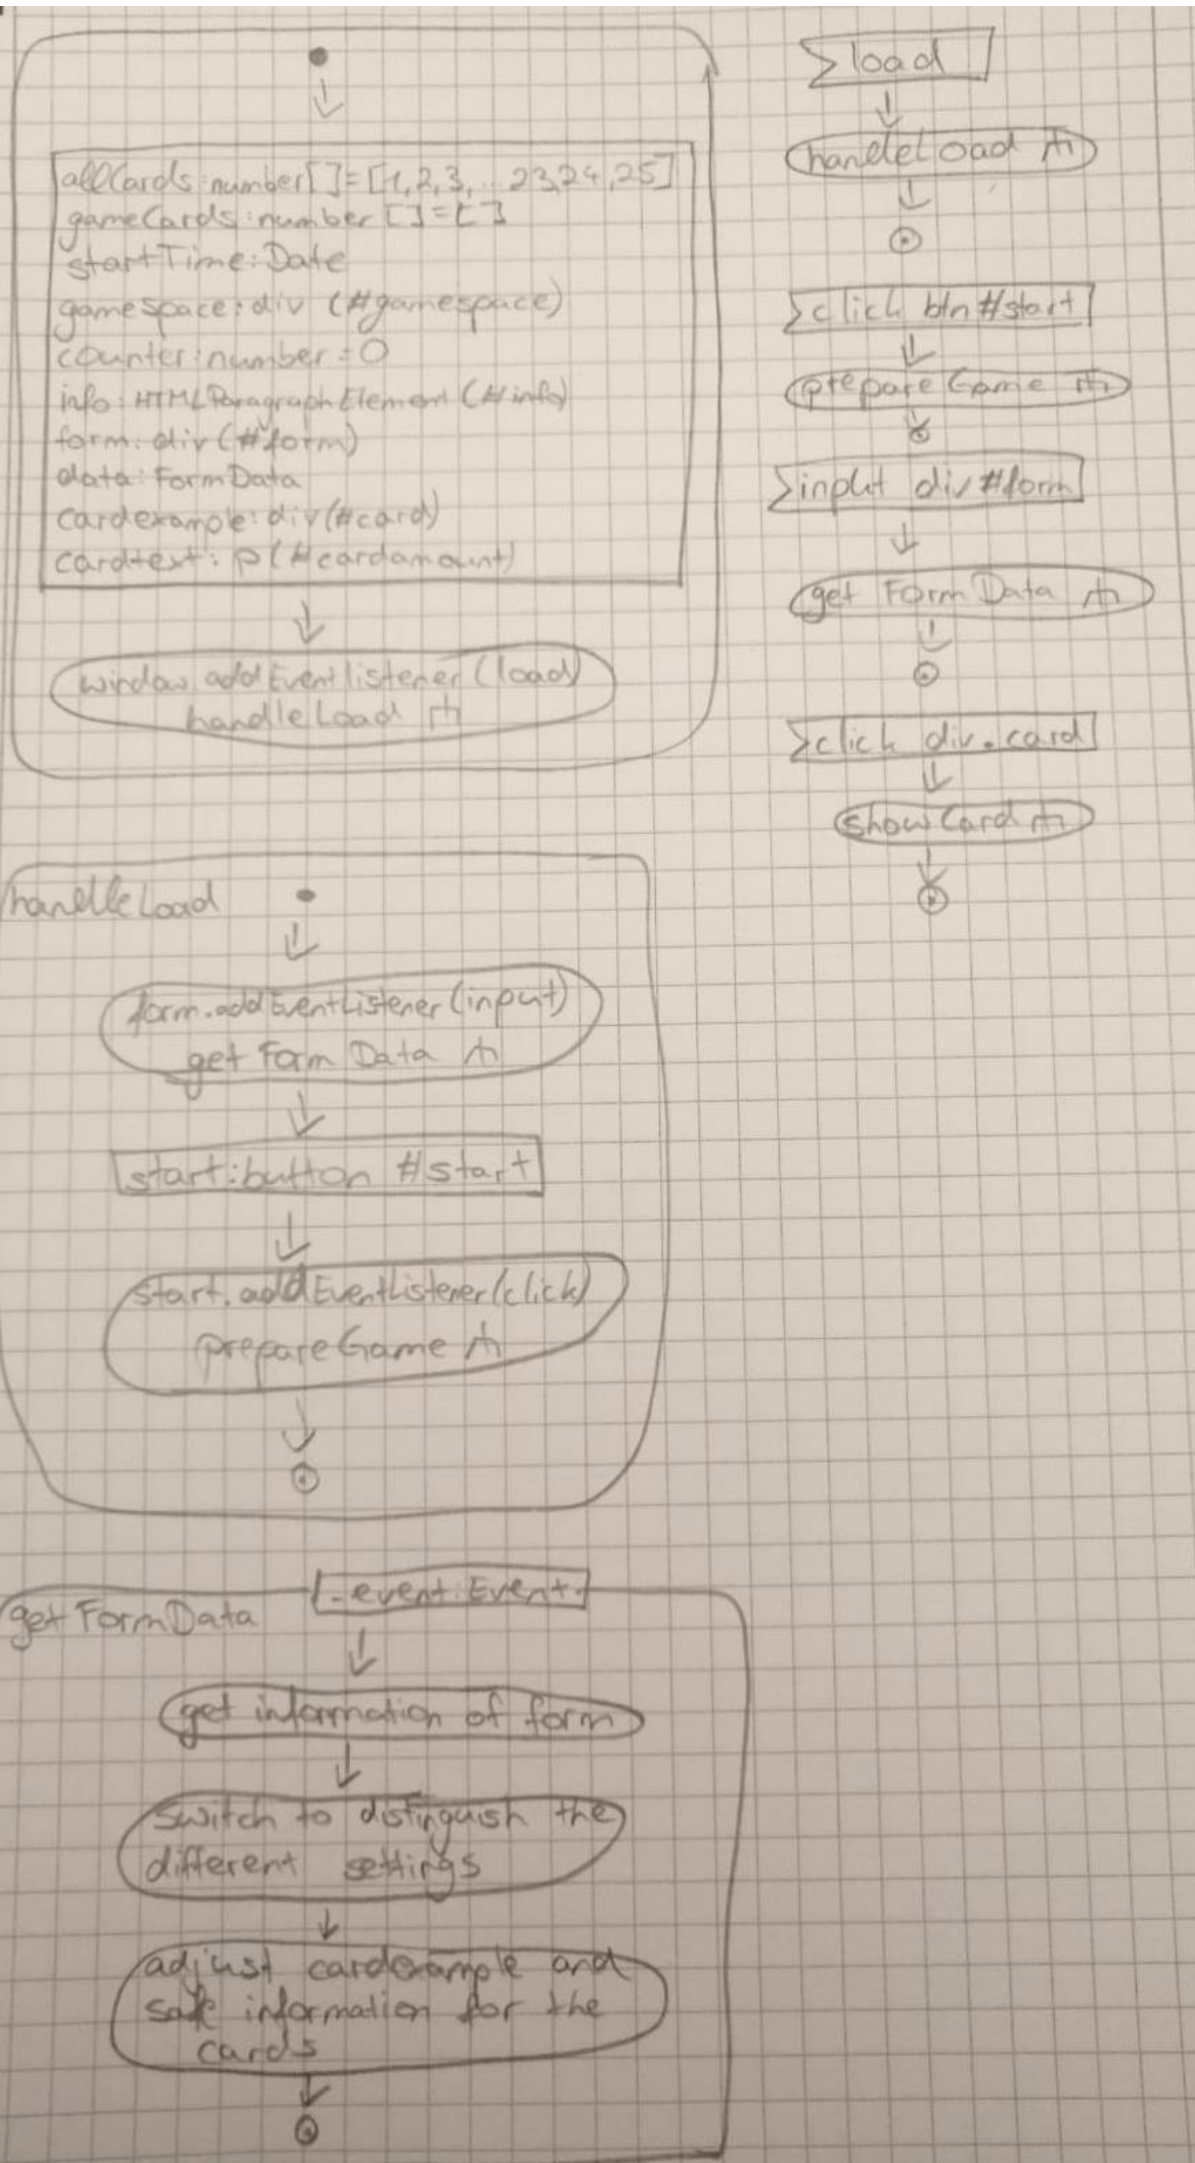 allCards:number[]=[1,2,3,...23,24,25]
gameCards:number[]=[]
startTime:Date
gamespace:div (#gamespace)
counter:number=0
info:HTMLParagraphElement(#info)
form:div(#form)
data:FormData
cardexample:div(#card)
cardtext:p(#cardamount)
window.addEventlistener(load)
handleLoad
handleLoad
form.addEventListener(input)
get Form Data
start:button #start
start.addEventListener(click)
prepareGame
_event:Event
get FormData
get information of form
switch to distinguish the
different settings
adjust cardexample and
safe information for the
cards
load
handleLoad
click btn#start
prepareGame
input div#form
get Form Data
click div.card
showCard